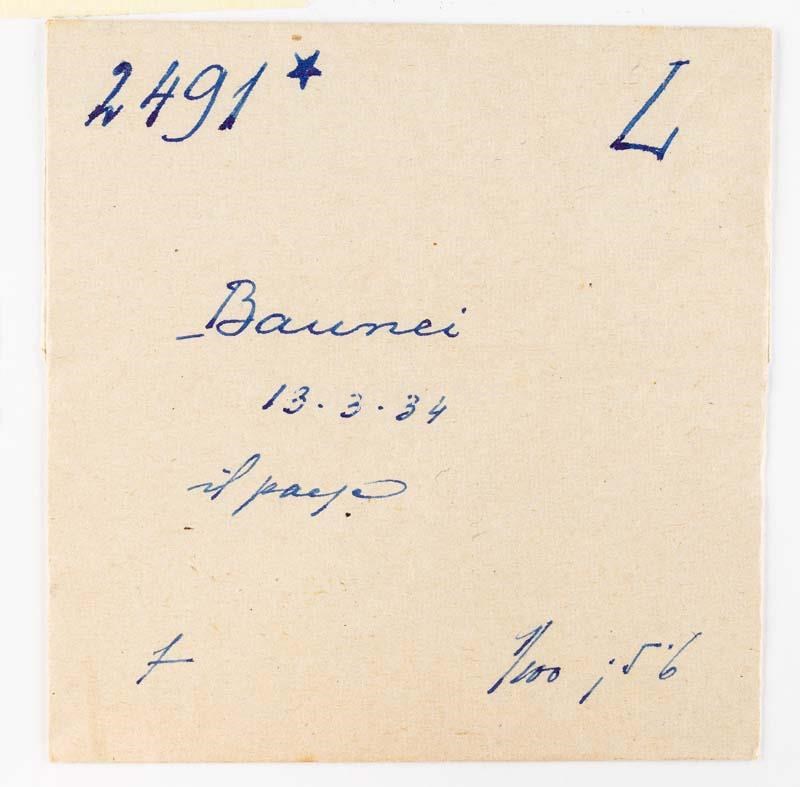 2491* L
Baunei
13.3.34
il paese
1/100 ; 5.6